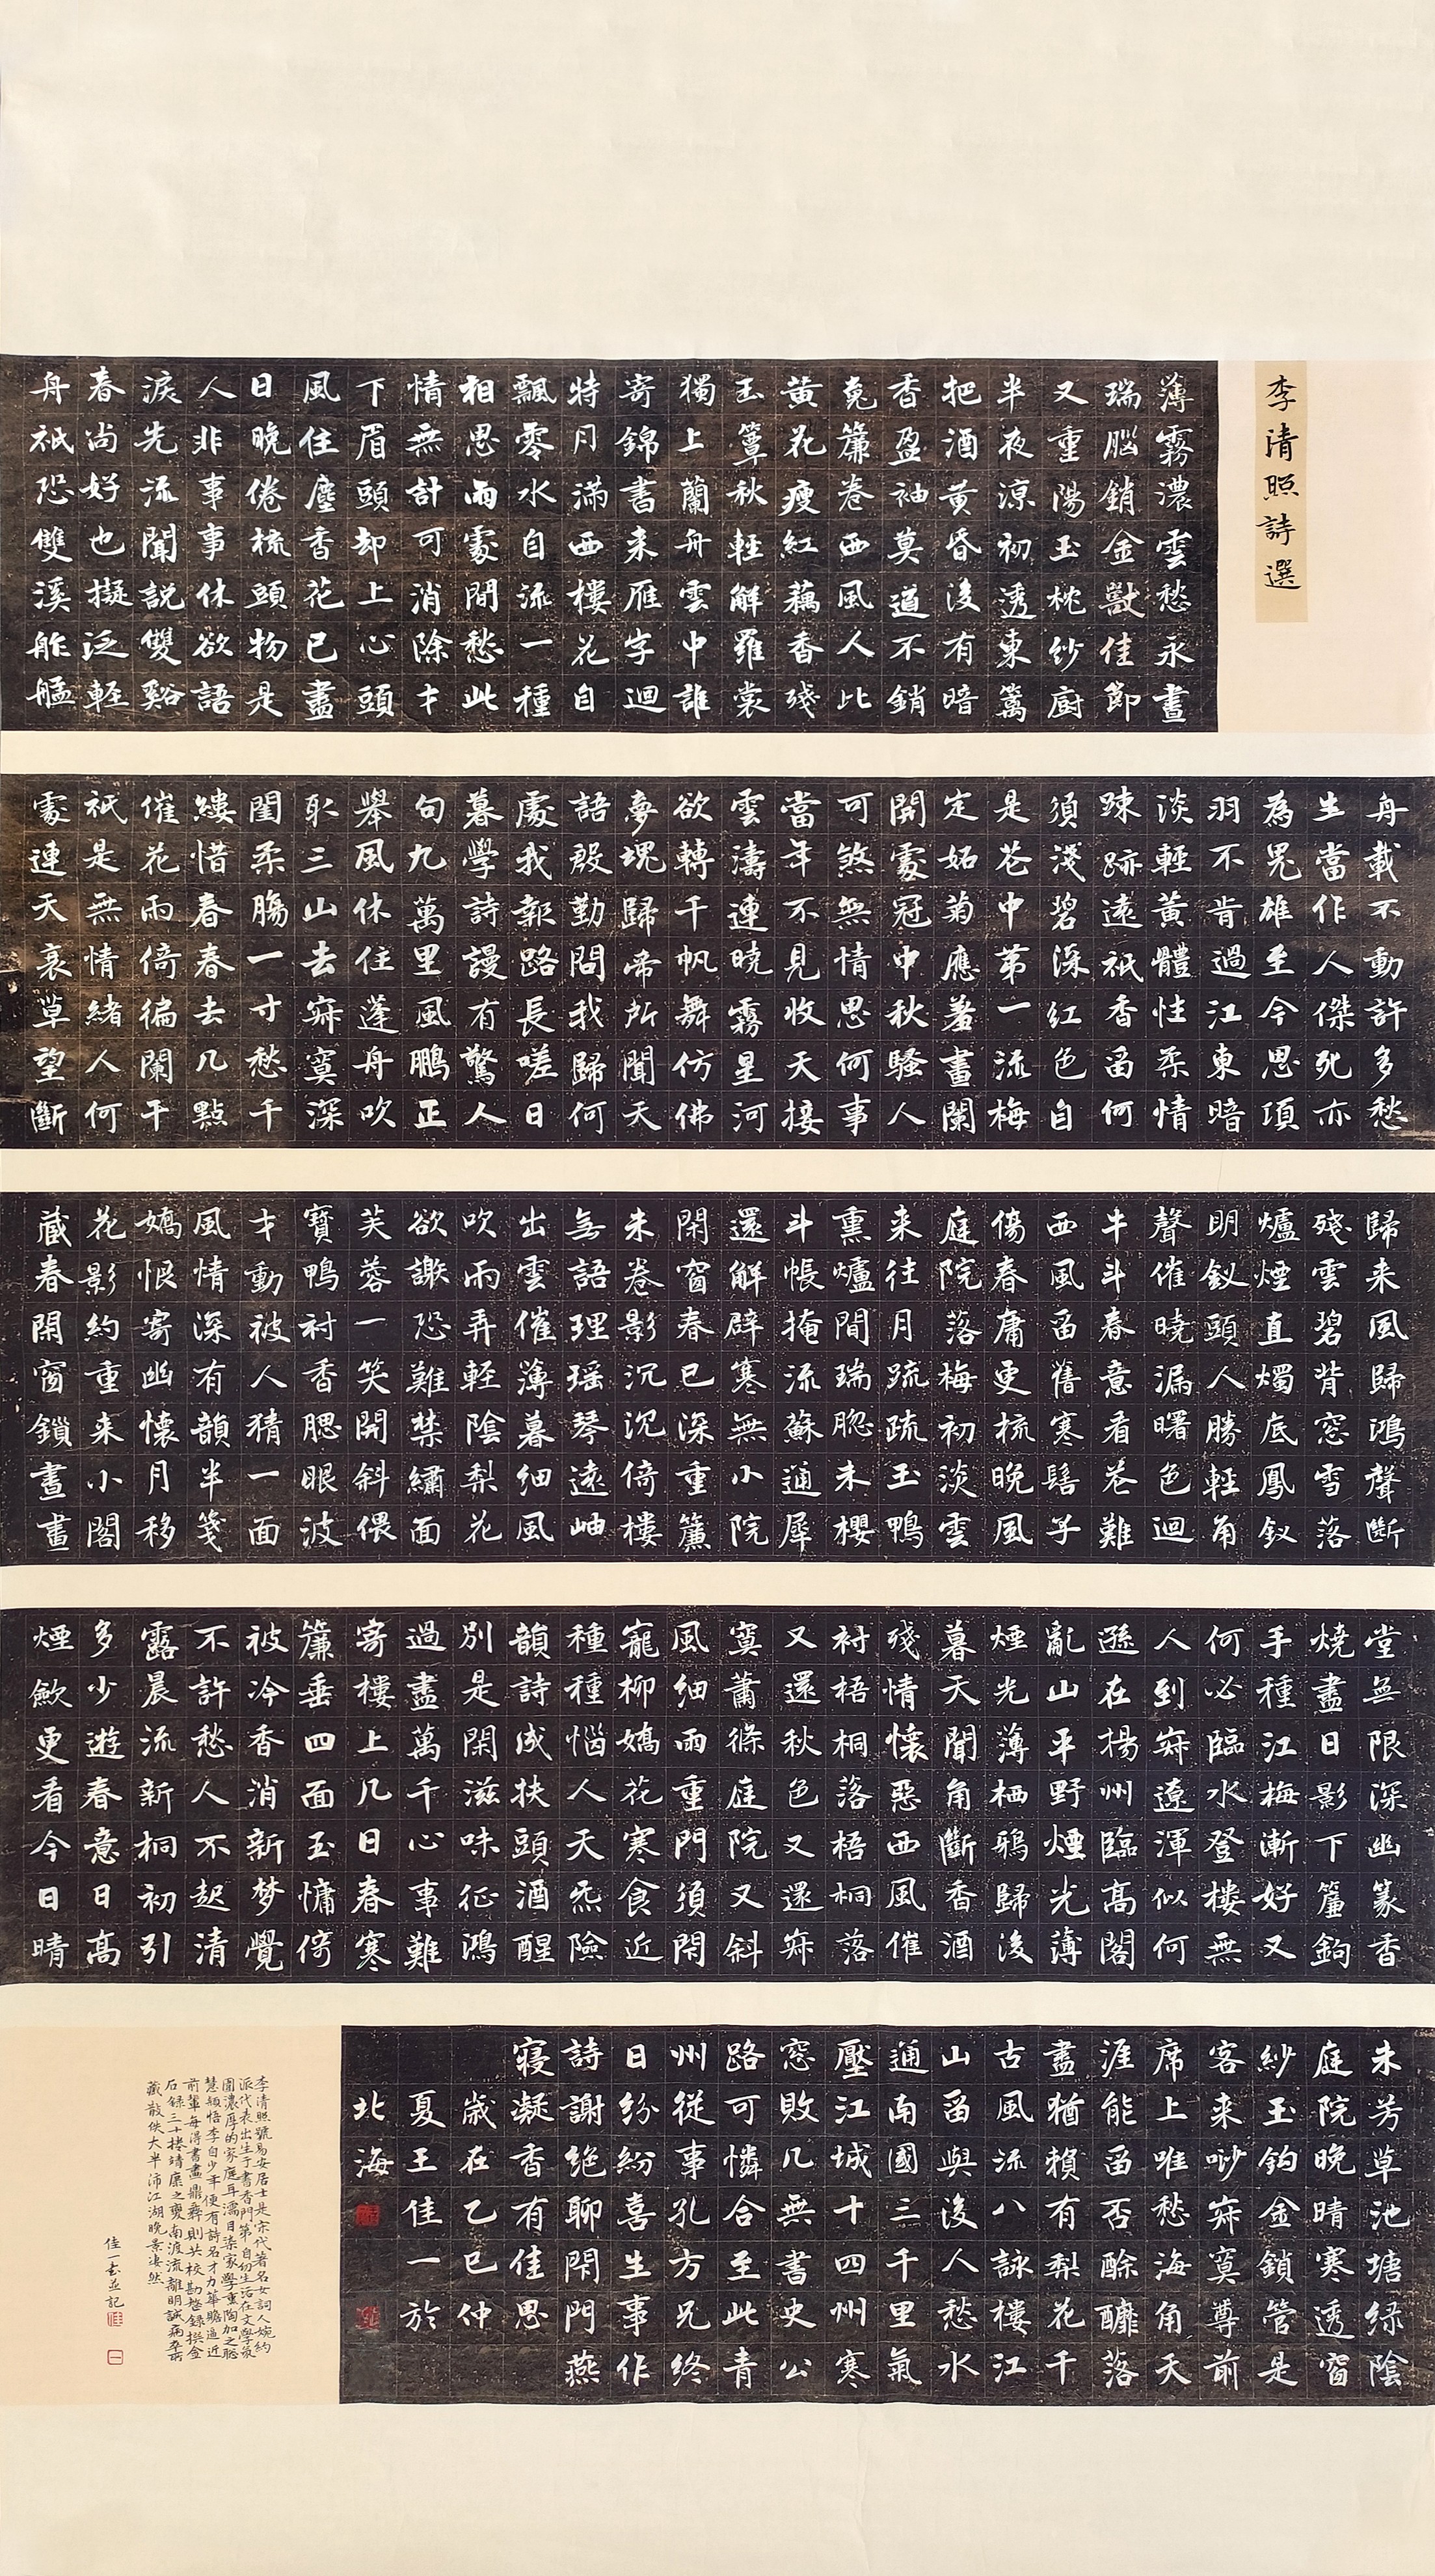 李清照詩選
薄霧濃雲愁永晝
瑞腦銷金獸佳節
又重陽玉枕紗廚
半夜涼初透東籬
把酒黃昏後有暗
香盈袖莫道不銷
䰟簾卷西風人比
黃花瘦紅藕香殘
玉簟秋輕解羅裳
獨上蘭舟雲中誰
寄錦書来雁字迴
特月滿西樓花自
飄零水自流一種
相思兩處閒愁此
情無計可消除才
下眉頭却上心頭
風住塵香花已盡
日晚倦梳頭物是
人非事事休欲語
淚先流聞說雙谿
春尚好也擬泛輕
舟祇恐雙溪舴艋
舟載不動許多愁
生當作人傑死亦
為鬼雄至今思項
羽不肯過江東暗
淡輕黃體性柔情
踈跡遠祇香留何
須淺碧深紅色自
是花中第一流梅
定妬菊應羞畫闌
開處冠中秋騷人
可煞無情思何事
當年不見收天接
雲濤連曉霧星河
欲轉千帆舞仿佛
夢魂歸帝所聞天
語殷勤問我歸何
處我報路長嗟日
暮學詩謾有驚人
句九萬里風鵬正
舉風休住蓬舟吹
取三山去寂寞深
閨柔腸一寸愁千
縷惜春春去几點
催花雨倚徧闌干
祇是無情緒人何
處連天衰草望斷
歸来風歸鴻聲斷
殘雲碧背窓雪落
爐煙直燭底鳳釵
明釵頭人勝輕角
聲催曉漏曙色迴
牛斗春意看花難
西風留舊寒髻子
傷春庸更梳晚風
庭院落梅初淡雲
来往月疏疏玉鴨
熏爐閒瑞腦朱櫻
斗帳掩流蘇通犀
還解辟寒無小院
閑窗春已深重簾
未卷影沉沉倚樓
無語理瑤琴遠岫
出雲催薄暮細風
吹雨弄輕陰梨花
欲謝恐難禁繡面
芙蓉一笑開斜偎
寶鴨衬香腮眼波
才動被人猜一面
風情深有韻半箋
嬌恨寄幽懷月移
花影約重来小閣
藏春閑窗鎖晝畫
堂無限深幽篆香
燒盡日影下簾鉤
手種江梅漸好又
何必臨水登樓無
人到寂遼渾似何
遜在揚州臨高閣
亂山平野煙光薄
煙光薄栖鴉歸後
暮天聞角斷香酒
殘情懷惡西風催
衬梧桐落梧桐落
又還秋色又還寂
寞蕭條庭院又斜
風細雨重門須閑
寵柳嬌花寒食近
種種惱人天炁險
韻詩成扶頭酒醒
別是閑滋味征鴻
過盡萬千心事難
寄樓上几日春寒
簾垂四面玉慵倚
被冷香消新梦覺
不許愁人不起清
露晨流新桐初引
多少遊春意日高
煙歛更看今日晴
未芳草池塘绿陰
庭院晚晴寒透窗
紗玉鈎金鎖管是
客来唦寂寞尊前
席上唯愁海角天
涯能留否酴釄落
盡猶賴有梨花千
古風流八詠樓江
山留與後人愁水
通南國三千里氣
壓江城十四州寒
窓敗几無書史公
路可憐合至此青
州從事孔方兄終
日紛紛喜生事作
詩謝絕聊閉門燕
寢凝香有佳思
歲在乙巳仲
夏王佳一於
北海
李清照號易安居士是宋代著名女詞人婉約
派代表出生于書香門第自幼生活在文學氛
圍濃厚的家庭耳濡目染家學熏陶加之聰
慧穎悟李自少年便有詩名才力華贍逼近
前輩每得書畫鼎彝則共校勘整錄撰金
石錄三十捲靖康之變南渡流離明誠病卒所
藏散佚大半沛江湖晚景凄然
佳一書並記